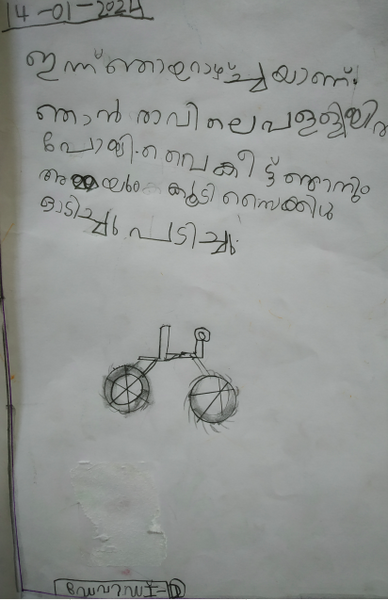 14-01-2024
ഇന്ന് ഞായറാഴ്ച്ചയാണ്.
ഞാൻ രാവിലെ പള്ളിയിൽ
പോയി. വൈകീട്ട് ഞാനും
അമ്മയും കൂടി സൈക്കിൾ
ഓടിച്ചു പഠിച്ചു